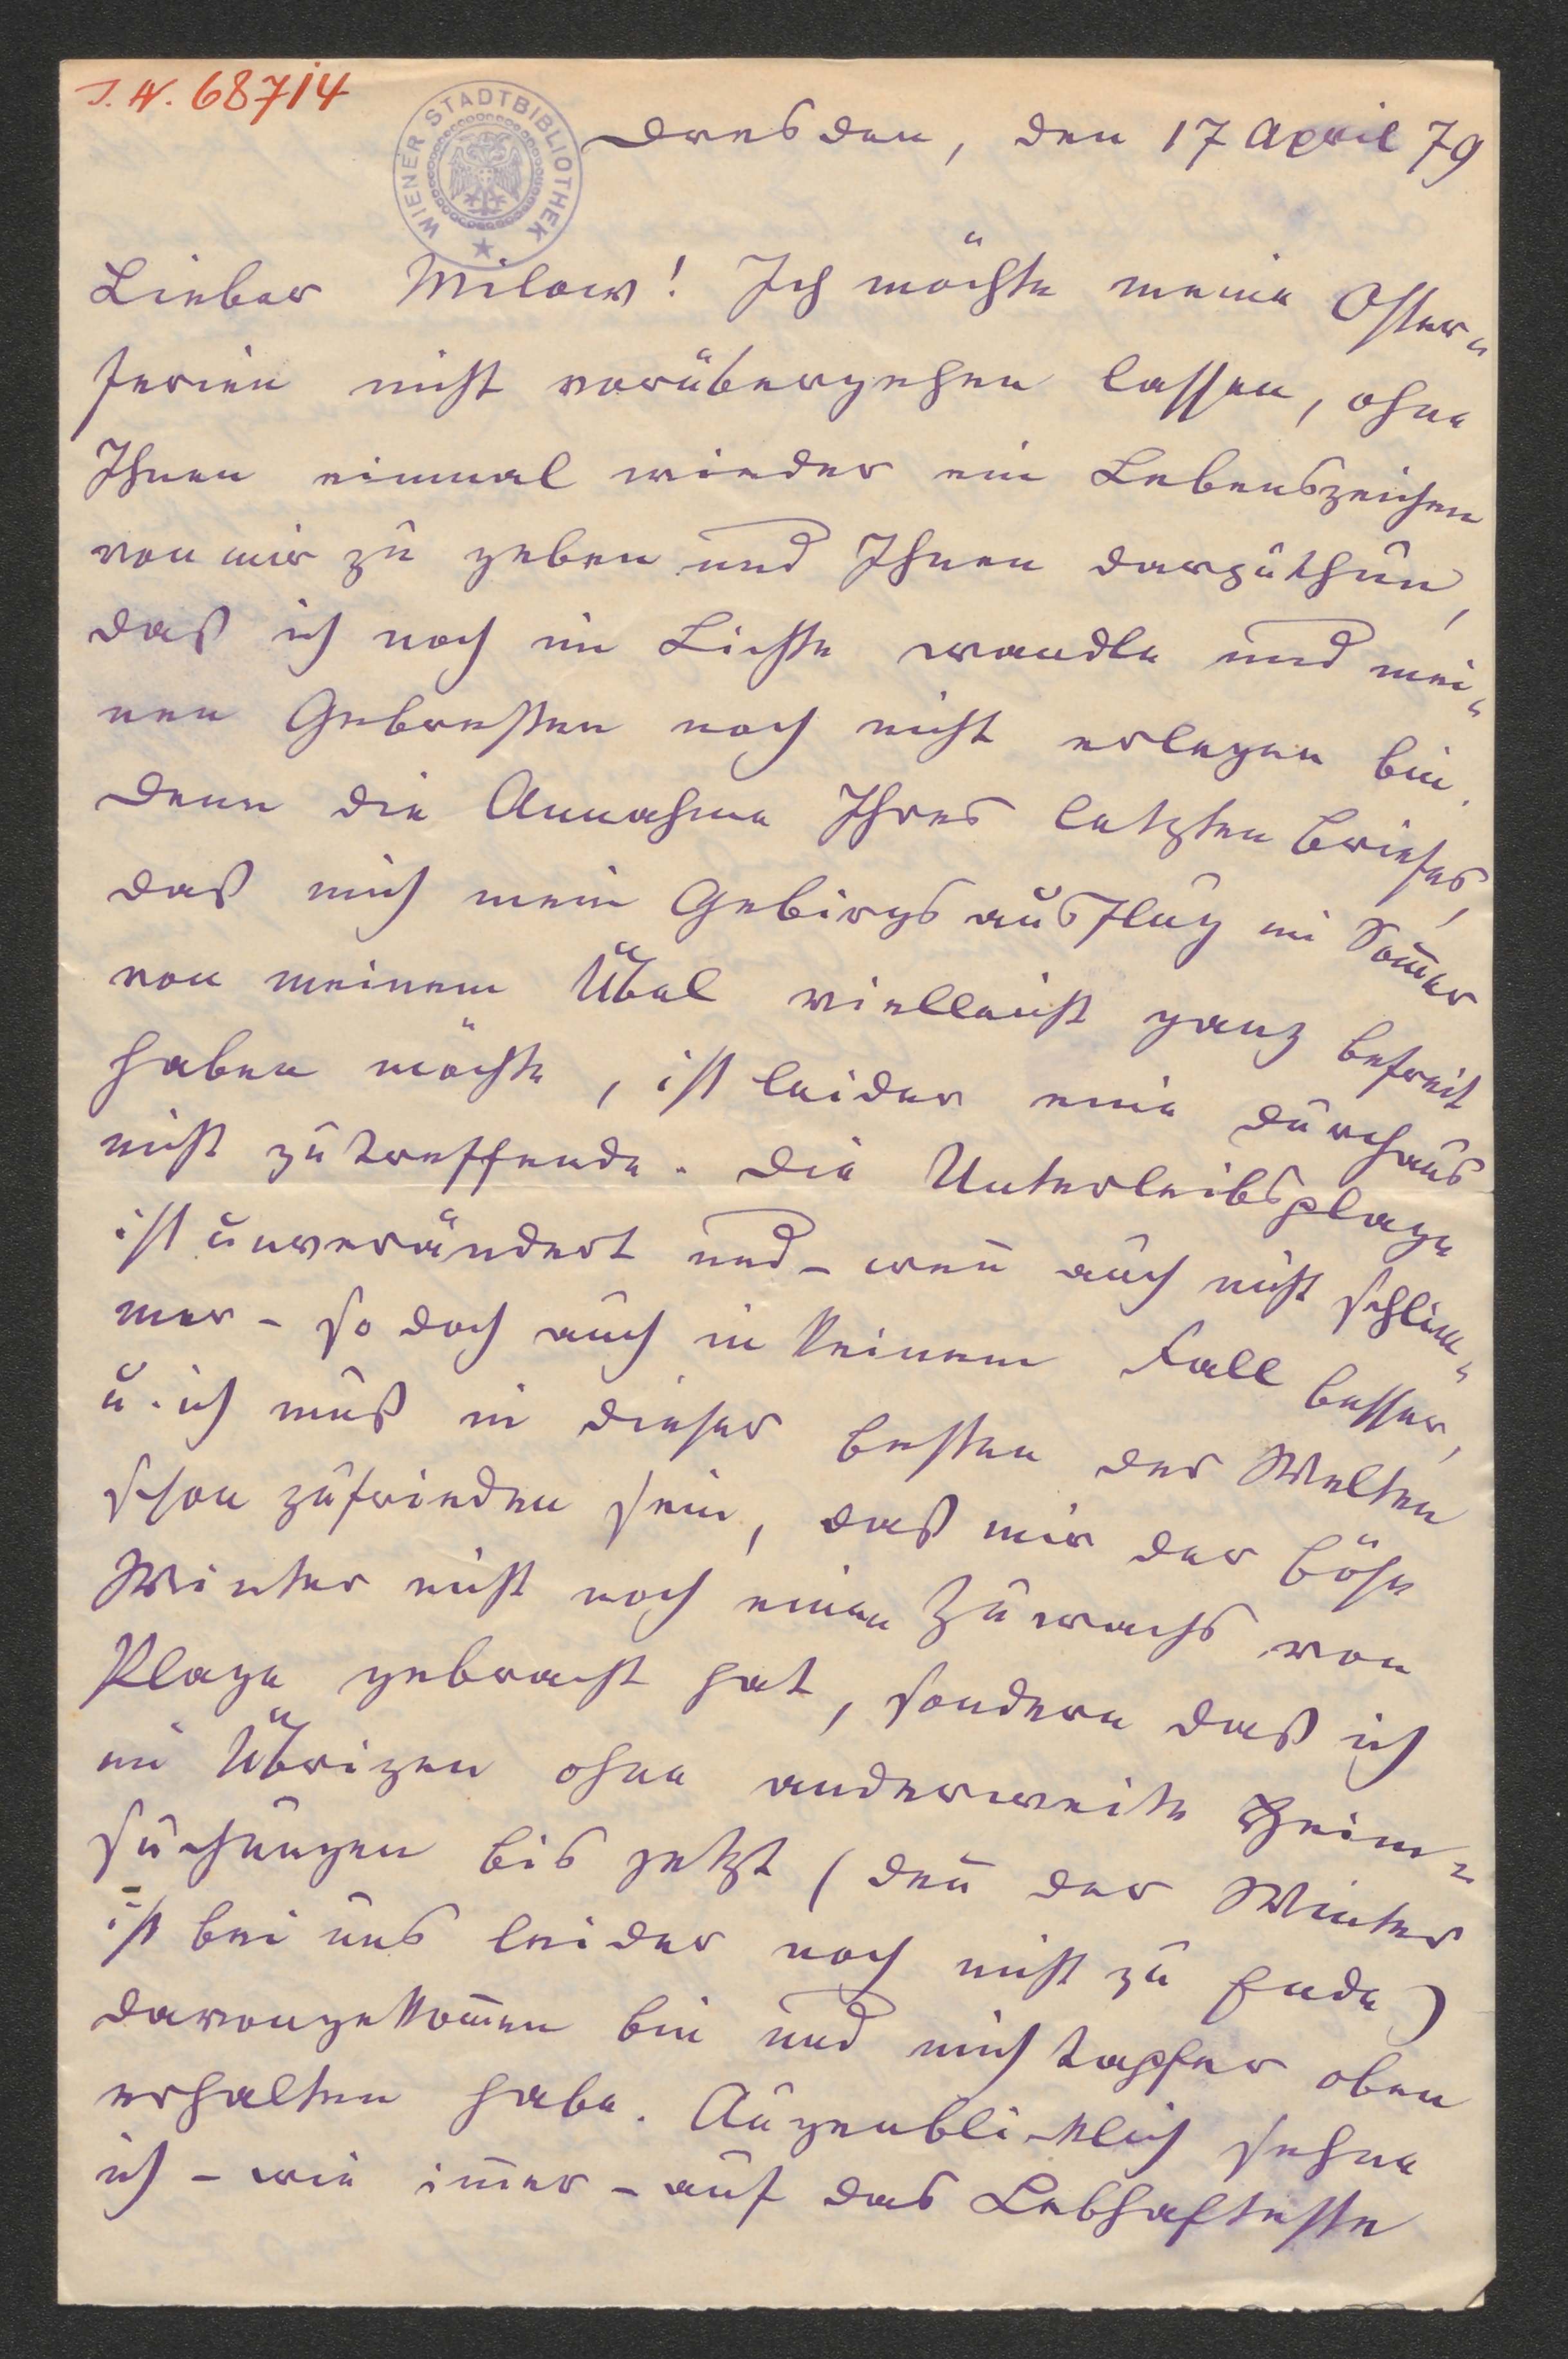 I. N. 68714
WIENER STADTBIBLIOTHEK
Dresden, den 17 April 79
Lieber Milow! Ich möchte meine Oster-
ferien nicht vorübergehen lassen, ohne
Ihnen einmal wieder ein Lebenszeichen
von mir zu geben und Ihnen darzuthun,
daß ich noch im Lichte wandle und mei-
nen Gebresten noch nicht erlegen bin.
Denn die Annahme Ihres letzten Briefes,
daß mich mein Gebirgsausflug im Som̄er
von meinem Übel vielleicht ganz befreit
haben möchte, ist leider eine durchaus
nicht zutreffende. Die Unterleibsplage
ist unverändert und – wen̄ auch nicht schlim-
mer – so doch auch in keinem Fall besser,
u. ich muß in dieser besten der Welten
schon zufrieden sein, daß mir der böse
Winter nicht noch einen Zuwachs von
Plage gebracht hat, sondern daß ich
im Übrigen ohne anderweite Heim-
suchungen bis jetzt (den̄ der Winter
ist bei uns leider noch nicht zu Ende)
davongekom̄en bin und mich tapfer oben
erhalten habe. Augenblicklich sehne
ich – wie im̄er – auf das Lebhafteste